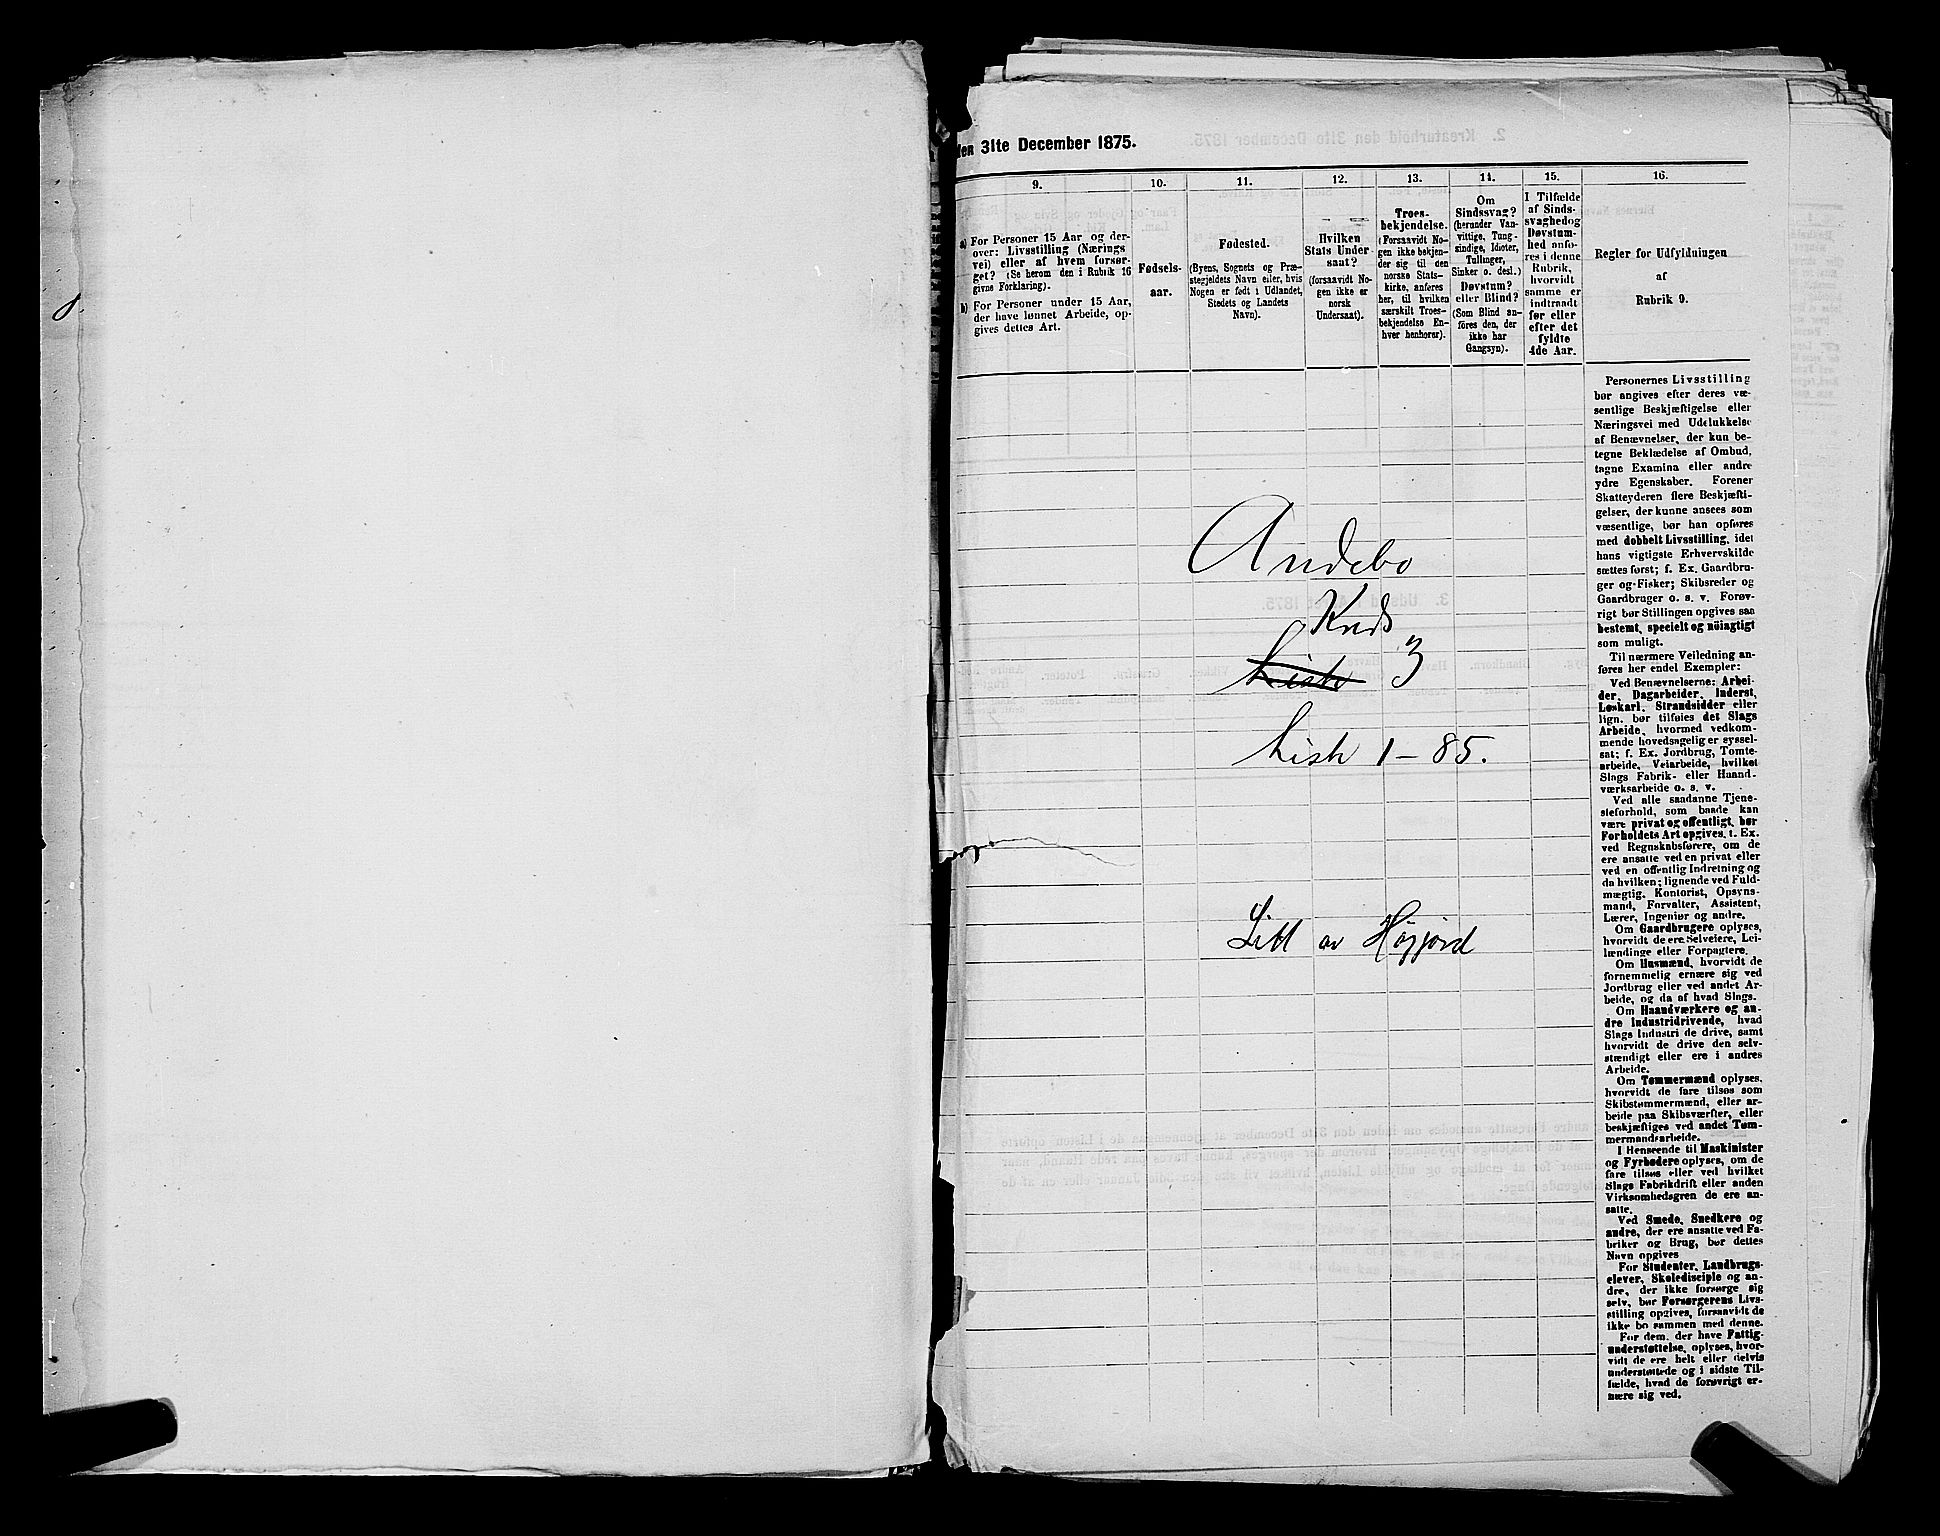 den 31te December 1875.
9.
a) For Personer 15 Aar og der-
over: Livsstilling (Nærings
vei) eller af hvem forsør-
get? (Se herom den i Rubrik 16
givne Forklaring).
b) For Personer under 15 Aar,
der have lønnet Arbeide, op-
gives dettes Art.
10.
Fødsels-
aar.
11.
Fødested.
(Byens, Sognets og Præ-
stegjeldets Navn eller, hvis
Nogen er født i Udlandet,
Stedets og Landets
Navn).
12.
Hvilken
Stats Under
saat?
(forsaavidt No-
gen ikke er
norsk
Undersaat).
13.
Troes-
bekjendelse.
(Forsaavidt No-
gen ikke bekjen-
der sig til den
norske Stats-
kirke, anføres
her, til hvilken
særskilt Troes-
bekjendelse En-
hver henhører).
14.
Om
Sindssvag?
(herunder Van-
vittige, Tung-
sindige, Idioter,
Tullinger,
Sinker o. desl.)
Døvstum?
eller Blind?
(Som Blind an-
føres den, der
ikke har
Gangsyn).
15.
I Tilfælde
af Sinds-
svaghed og
Døvstum-
hed anfø-
res i denne
Rubrik,
hvorvidt
samme er
indtraadt
før eller
efter det
fyldte
4de Aar.
16.
Regler for Udfyldningen
af
Rubrik 9.
Andebo
Krds
Liste 3
Liste 1-85.
Litt av Høyjord
Personernes Livsstilling
bør angives efter deres væ-
sentlige Beskjæftigelse eller
Næringsvei med Udelukkelse
af Benævnelser, der kun be-
tegne Beklædelse af Ombud,
tagne Examina eller andre
ydre Egenskaber. Forener
Skatteyderen flere Beskjæfti-
gelser, der kunne ansees som
væsentlige, bør han opføres
med dobbelt Livsstilling, idet
hans vigtigste Erhvervskilde
sættes først; f. Ex. Gaardbru-
ger og Fisker; Skibsreder og
Gaardbruger o. s. v. Forøv-
rigt bør Stillingen opgives saa
bestemt, specielt og nöiagtigt
som muligt.
Til nærmere Veiledning an-
føres her endel Exempler:
Ved Benævnelserne: Arbei-
der, Dagarbeider, Inderst,
Løskarl, Strandsidder eller
lign. bør tilføies det Slags
Arbeide, hvormed vedkom-
mende hovedsagelig er syssel-
sat; f. Ex. Jordbrug, Tomte-
arbeide, Veiarbeide, hvilket
Slags Fabrik- eller Haand-
værksarbeide o. s. v.
Ved alle saadanne Tjene-
steforhold, som baade kan
være privat og offentligt, bør
Forholdets Art opgives, f. Ex.
ved Regnskabsførere, om de
ere ansatte ved en privat eller
ved en offentlig Indretning og
da hvilken; lignende ved Fuld-
mægtig, Kontorist, Opsyns-
mand, Forvalter, Assistent,
Lærer, Ingeniør og andre.
Om Gaardbrugere oplyses,
hvorvidt de ere Selveiere, Lei-
lændinge eller Forpagtere.
Om Husmænd, hvorvidt de
fornemmelig ernære sig ved
Jordbrug eller ved andet Ar-
beide, og da af hvad Slags.
Om Haandværkere og an-
dre Industridrivende, hvad
Slags Industri de drive, samt
hvorvidt de drive den selv-
stændigt eller ere i andres
Arbeide.
Om Tømmermænd oplyses,
hvorvidt de fare tilsøs som
Skibstømmermænd, eller ar-
beide paa Skibsværfter, eller
beskjæftiges ved andet Tøm-
mermandsarbeide.
I Henseende til Maskinister
og Fyrbødere oplyses, om de
fare tilsøs eller ved hvilket
Slags Fabrikdrift eller anden
Virksomhedsgren de ere an-
satte.
Ved Smede, Snedkere og
andre, der ere ansatte ved Fa-
briker og Brug, bør dettes
Navn opgives
For Studenter, Landbrugs-
elever, Skoledisciple og an-
dre, der ikke forsørge sig
selv, bør Forsørgerens Livs-
stilling opgives, forsaavidt de
ikke bo sammen med denne.
For dem, der have Fattig-
understøttelse, oplyses, hvor-
vidt de ere helt eller delvis
understøttede og i sidste Til-
fælde, hvad de forøvrigt er-
nære sig ved.